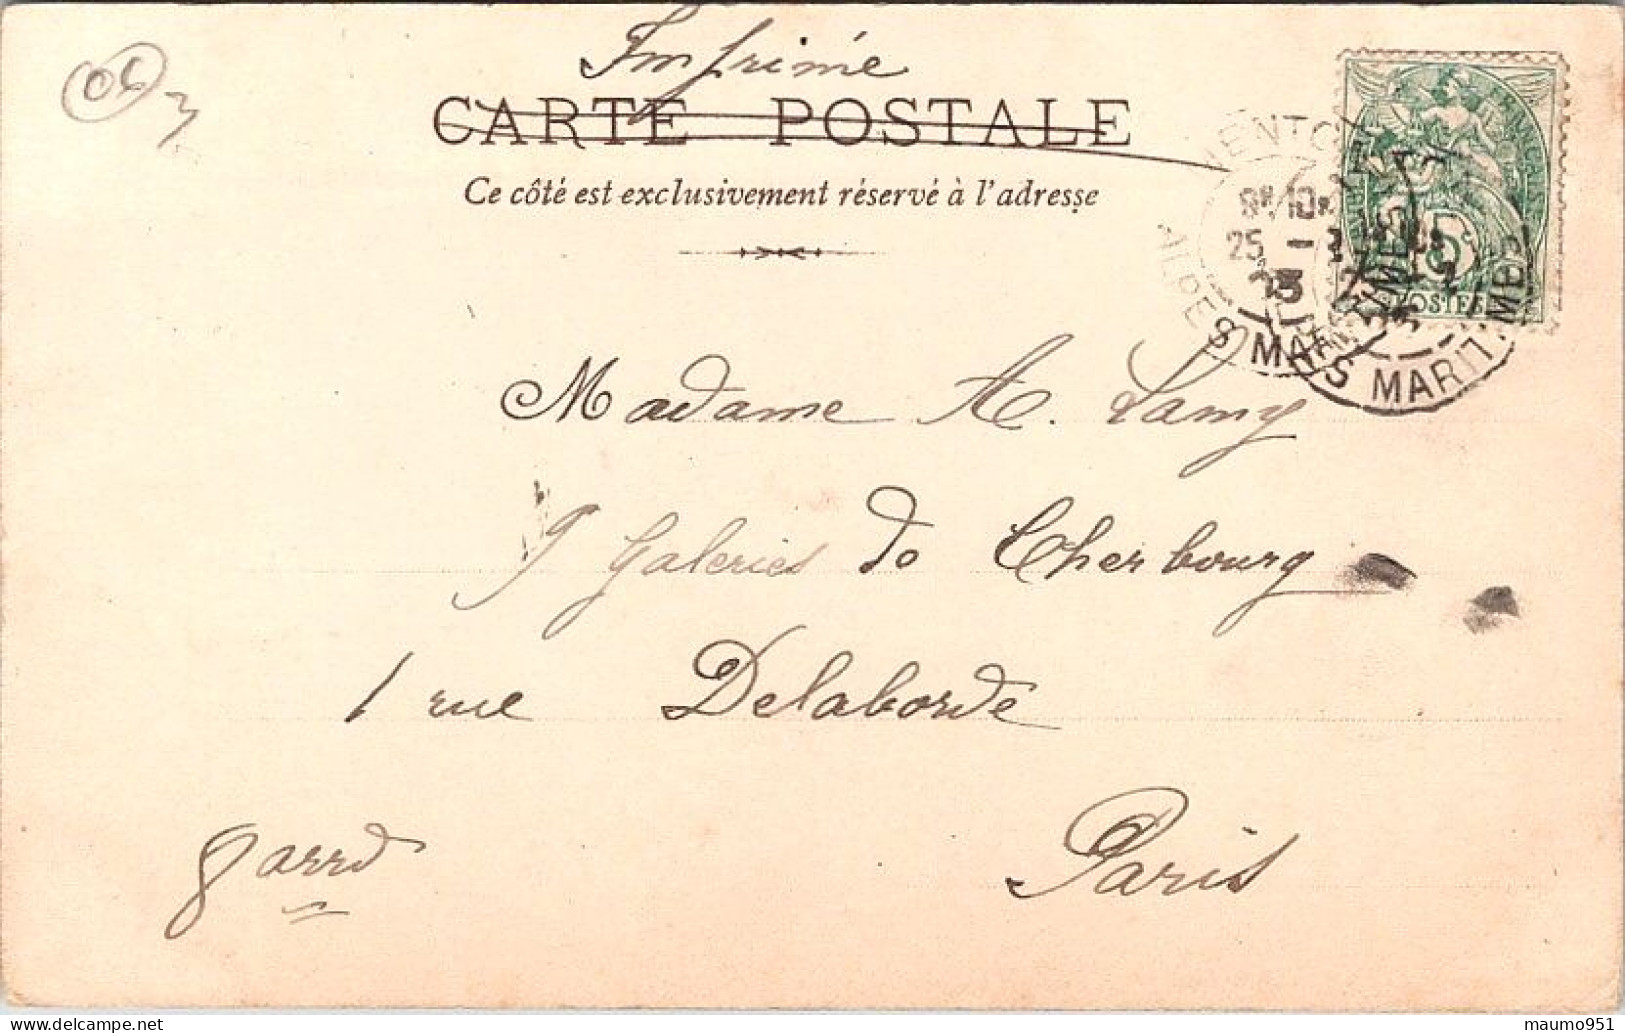 06
Imprimé
CARTE POSTALE
Ce côté est exclusivement réservé à l'adresse
MENTO
25
03
ALPES MARITIMES
POSTES
5
Madame A. Lamy
9 Galeries de Cherbourg
1 rue Delaborde
8 arrd
Paris
maumo951